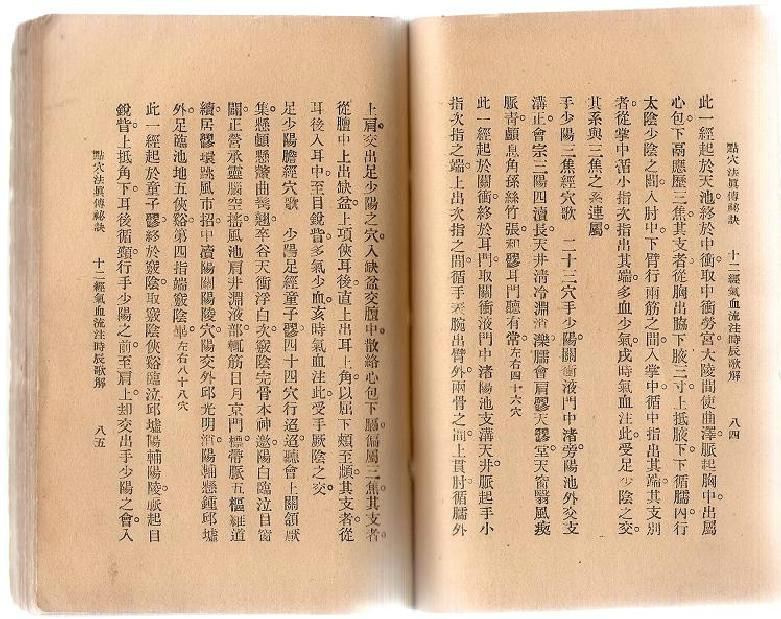 點穴法眞傳秘訣　十二經氣血流注時辰歌解　八四
此一經起於天池終於中衝取中衝勞宮大陵間使曲澤脈起胸中出屬
心包下鬲應歷三焦其支者從胸出脇下腋三寸上抵腋下下循臑內行
太陰少陰之間入肘中下臂行兩筋之間入掌中循中指出其端其支別
者從掌中循小指次指出其端多血少氣戌時氣血注此受足少陰之交
其系與三焦之系連屬
手少陽三焦經穴歌　二十三穴手少陽關衝液門中渚旁陽池外交支
溝正會宗三陽四瀆長天井清冷淵消濼臑會肩髎天髎堂天窗翳風瘈
脈青顱息角孫絲竹張和髎耳門聽有常左右四十六穴
此一經起於關衝終於耳門取關衝液門中渚陽池支溝天井脈起手小
指次指之端上出次指之間循手表腕出臂外兩骨之間上貫肘循臑外
上肩交出足少陽之穴入缺盆交膻中散絡心包下膈偏屬三焦其支者
從膻中上出缺盆上項俠耳後直上出耳上角以屈下頰至䪼其支者從
耳後入耳中至目銳眥多氣少血亥時氣血注此受手厥陰之交
足少陽膽經穴歌　少陽足經童子髎四十四穴行迢迢聽會上關頷厭
集懸顱懸釐曲鬢翹率谷天衝浮白次竅陰完骨本神邀陽白臨泣目窗
闢正營承靈腦空搖風池肩井淵液部輒筋日月京門標帶脈五樞維道
續居髎環跳風市招中瀆陽關陽陵穴陽交外邱光明消陽輔懸鍾邱墟
外足臨池地五俠谿第四指端竅陰畢左右八十八穴
此一經起於童子髎終於竅陰取竅陰俠谿臨泣邱墟陽輔陽陵脈起目
銳眥上抵角下耳後循頸行手少陽之前至肩上却交出手少陽之會入
點穴法眞傳秘訣　十二經氣血流注時辰歌解　八五